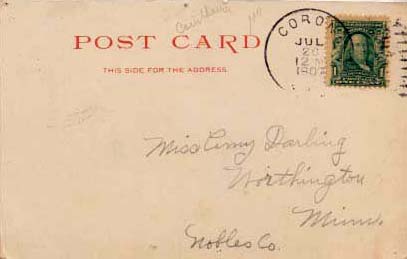 POST CARD
THIS SIDE FOR THE ADDRESS.
CORO
JUL
12 M
190
1
Miss Amy Darling
Worthington
Minn.
Nobles Co.